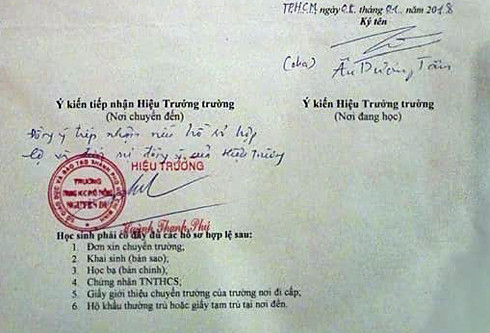 TP.H.C.M, ngày 08. tháng 01.. năm 2018
Ký tên
(cha) Ân Dương Tâm
Ý kiến tiếp nhận Hiệu Trưởng trường
(Nơi chuyển đến)
Ý kiến Hiệu Trưởng trường
(Nơi đang học)
Đồng ý tiếp nhận nếu hồ sơ hợp
lệ và được sự đồng ý của Hiệu Trưởng
HIỆU TRƯỞNG
TRƯỜNG
NGUYỄN DU
Huỳnh Thanh Phú
Học sinh phải có đầy đủ các hồ sơ hợp lệ sau:
1. Đơn xin chuyển trường;
2. Khai sinh (bản sao);
3. Học bạ (bản chính);
4. Chứng nhận TNTHCS;
5. Giấy giới thiệu chuyển trường của trường nơi đi cấp;
6. Hộ khẩu thường trú hoặc giấy tạm trú tại nơi đến.